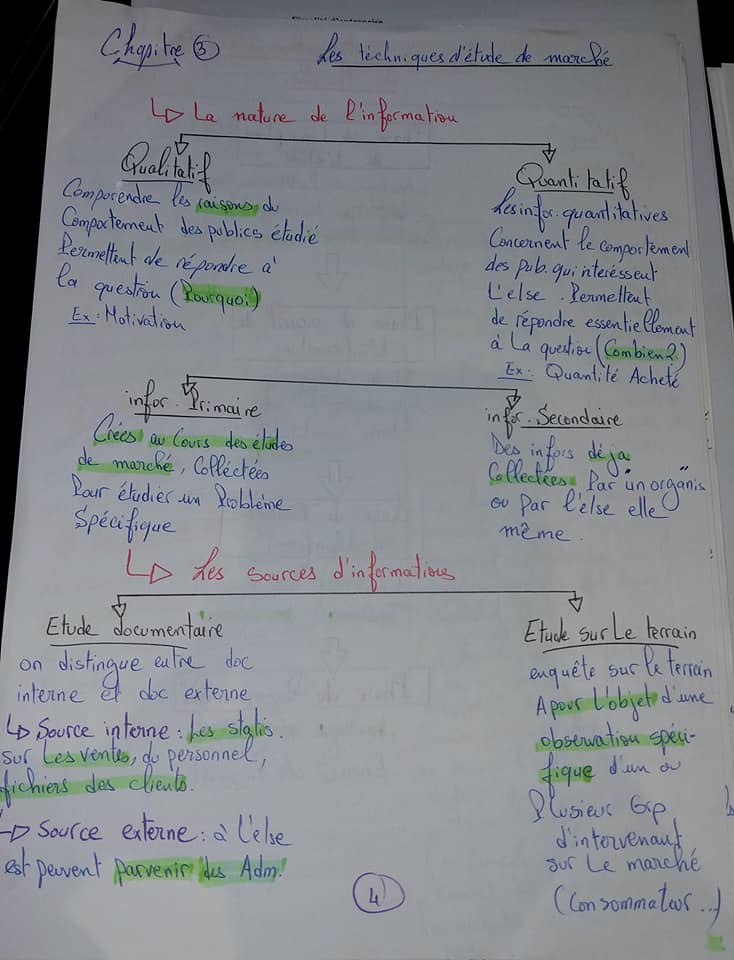 Chapitre 3
Les téchniques d'étude de marché
La nature de l'information
Qualitatif
Comprendre les raisons du
Comportement des publics étudié
Permettent de répondre à
la question (Pourquoi)
Ex: Motivation
Quantitatif
Les infor. quantitatives
Concernent le comportement
des pub. qui interéssent
L'else. Permettent
de répondre essentiellement
à La question (Combien?)
Ex: Quantité Acheté
infor. Primaire
Crées au Cours des études
de marché, Colléctées
Pour étudier un Problème
Spécifique
infor. Secondaire
Des infors déja
Collectées Par un organis
ou Par l'else elle
même.
Les sources d'informations
Etude documentaire
on distingue entre doc
interne et doc externe
Source interne: Les statis.
sur Les ventes, du personnel,
fichiers des clients.
Source externe: à L'else
est peuvent parvenir des Adm.
Etude sur Le terrain
enquête sur le terrain
A pour L'objet d'une
observation spéci-
fique d'un ou
Plusieur Grp
d'intervenant
sur Le marché
(Consommateur...)
4